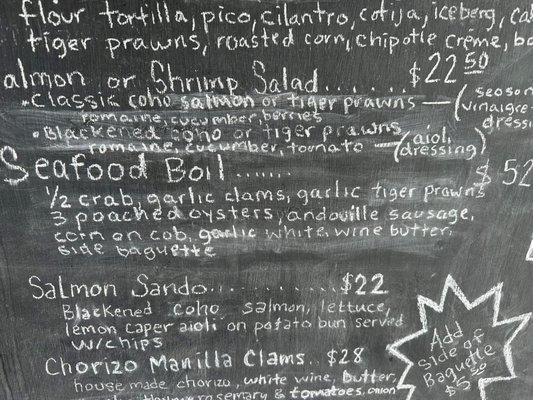 flour tortilla, pico, cilantro, cotija, iceberg,
tiger prawns, roasted corn, chipotle crème,
almon or Shrimp Salad...... $22 50
• Classic coho salmon or tiger prawns — (season
romaine, cucumber, berries vinaigre
dressi
• Blackened coho or tiger prawns
romaine, cucumber, tomato — (aioli dressing)
Seafood Boil....... $52
1/2 crab, garlic clams, garlic tiger prawns
3 poached oysters, andouille sausage,
corn on cob, garlic white, wine butter,
side baguette
Salmon Sando........... $22
Blackened coho salmon, lettuce,
lemon caper aioli on potato bun served
w/chips
Chorizo Manilla Clams.. $28
house made chorizo, white wine, butter,
rosemary & tomatoes, onion
Add
side of
Baguette
$5.50